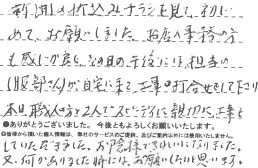 新聞の折込みチラシを見て、初
めて、お願いしました。お店の事務の方
も感じが良く、次の日の午後には、担当の
(服部さん)が自宅に来て工事の打合せをして下り
本日職人さんと2人でスピーディに親切に、工事を
●ありがとうございました。今後ともよろしくお願いいたします。
◎皆様から頂いた個人情報は、弊社のサービスのご提供、及びご案内以外には使用いたしません。
していただきました。お客様できれいになりました。
又、何かありました時には、お願いしたいと思います。